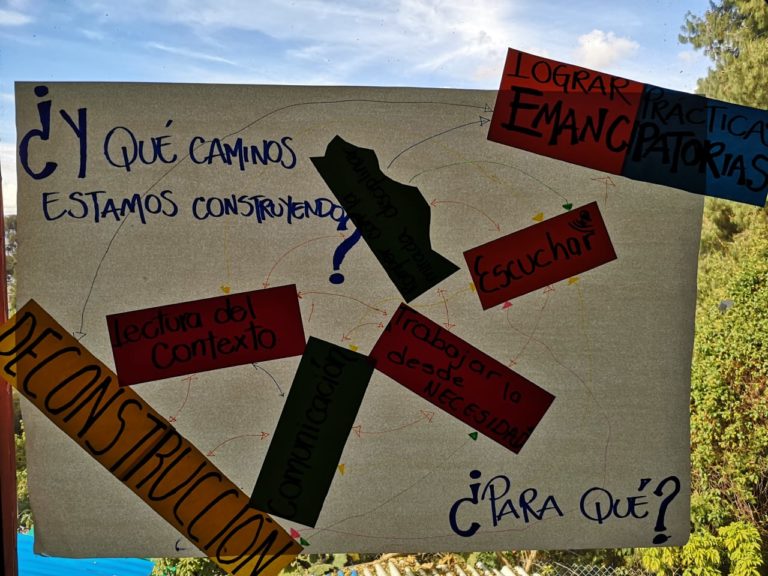 ¿Y QUÉ CAMINOS
ESTAMOS CONSTRUYENDO?
LOGRAR PRÁCTICAS
EMANCIPATORIAS
Romper con la
mirada disciplinar
Escuchar
lectura del
contexto
Trabajar la
desde
NECESIDAD
Comunicación
DECONSTRUCCIÓN
¿PARA QUÉ?